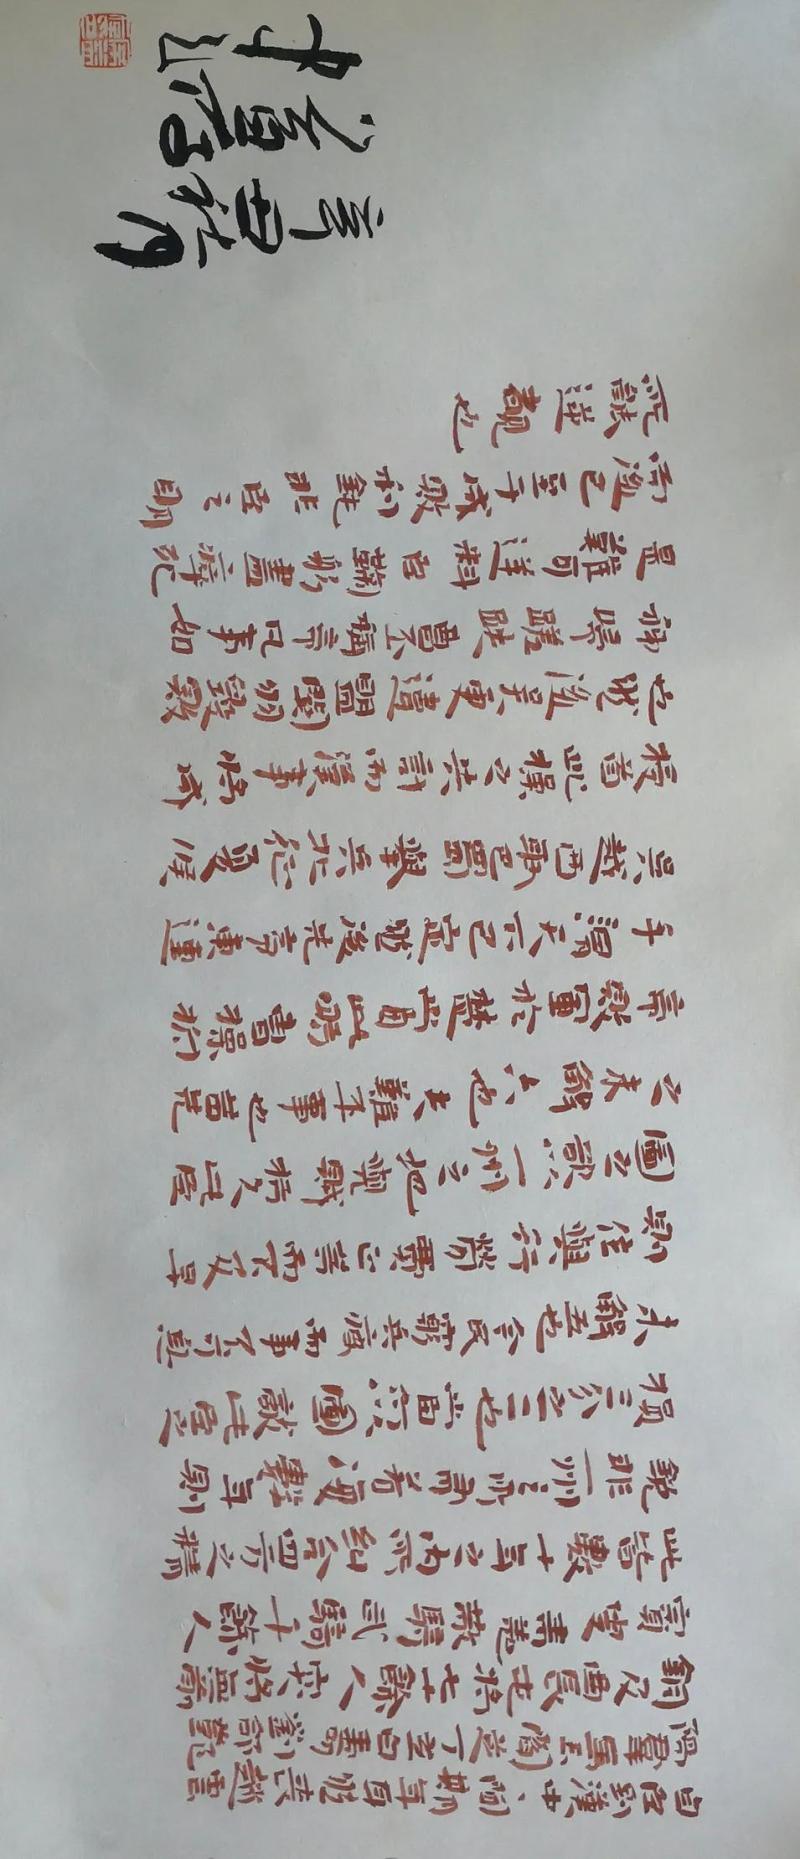 自臣到漢中中間期年耳然喪趙雲
陽羣馬玉閻芝丁立白壽劉郃鄧
銅及曲長屯將七十餘人突將無前
賨叟青羌散騎武騎一千餘人
此皆數十年之內所糾合四方之精
銳非一州之所有若復數年則
損三分之二也當何以圖敵此臣之
未解五也今民窮兵疲而事不可息
則住與行勞費正等而不及早
圖之欲以一州之地與賊持久此臣
之未解六也夫難平事也昔先
帝敗軍於楚當此時曹操拊
手謂天下已定然後先帝東連
吳越西取巴蜀舉兵北征夏侯
授首此操之失計而漢事將成
也然後吳更違盟關羽毀敗
秭歸蹉跌曹丕稱帝凡事如
是難可逆料臣鞠躬盡瘁死
而後已至于成敗利鈍非臣之明
所能逆覩也